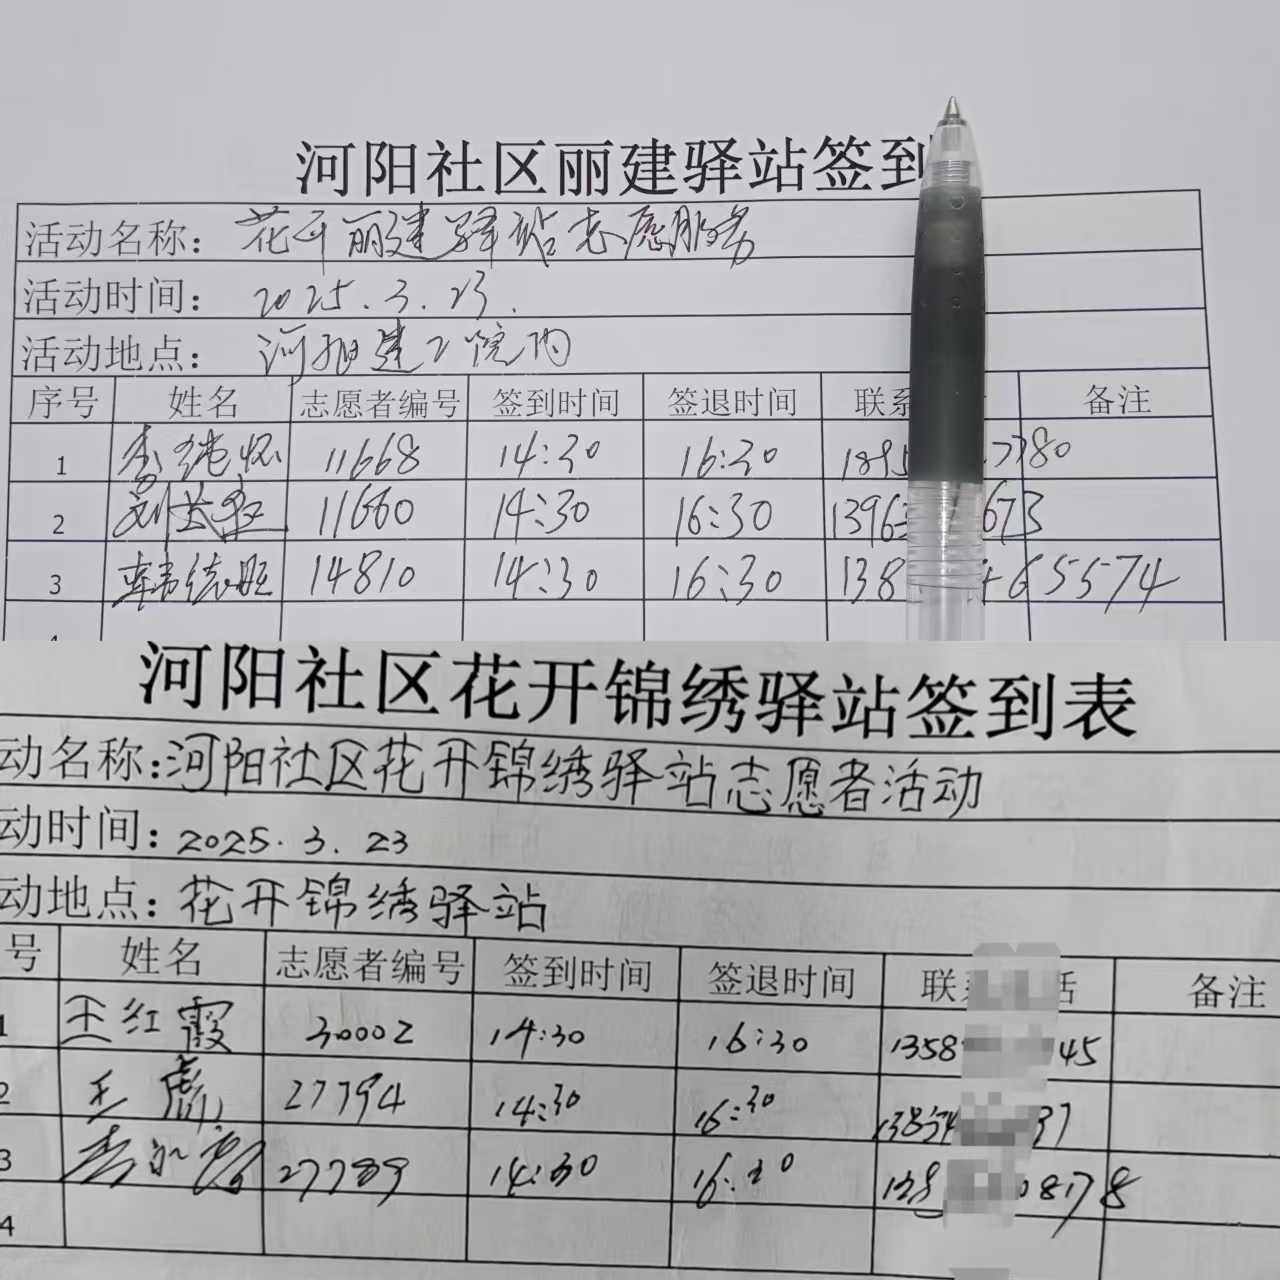 河阳社区丽建驿站签到
活动名称：花开丽建驿站志愿服务
活动时间：2025.3.23.
活动地点：河阳建工院内
序号 姓名 志愿者编号 签到时间 签退时间 联系 备注
1 李纯怀 11668 14:30 16:30 1895 7780
2 刘长 11660 14:30 16:30 1396 673
3 韩德旺 14810 14:30 16:30 138 4655574
河阳社区花开锦绣驿站签到表
动名称：河阳社区花开锦绣驿站志愿者活动
动时间：2025.3.23
动地点：花开锦绣驿站
号 姓名 志愿者编号 签到时间 签退时间 联 话 备注
1 王红霞 30002 14:30 16:30 1358 45
2 王彪 27794 14:30 16:30 1385 37
3 27789 14:30 16:30 138 08178
4